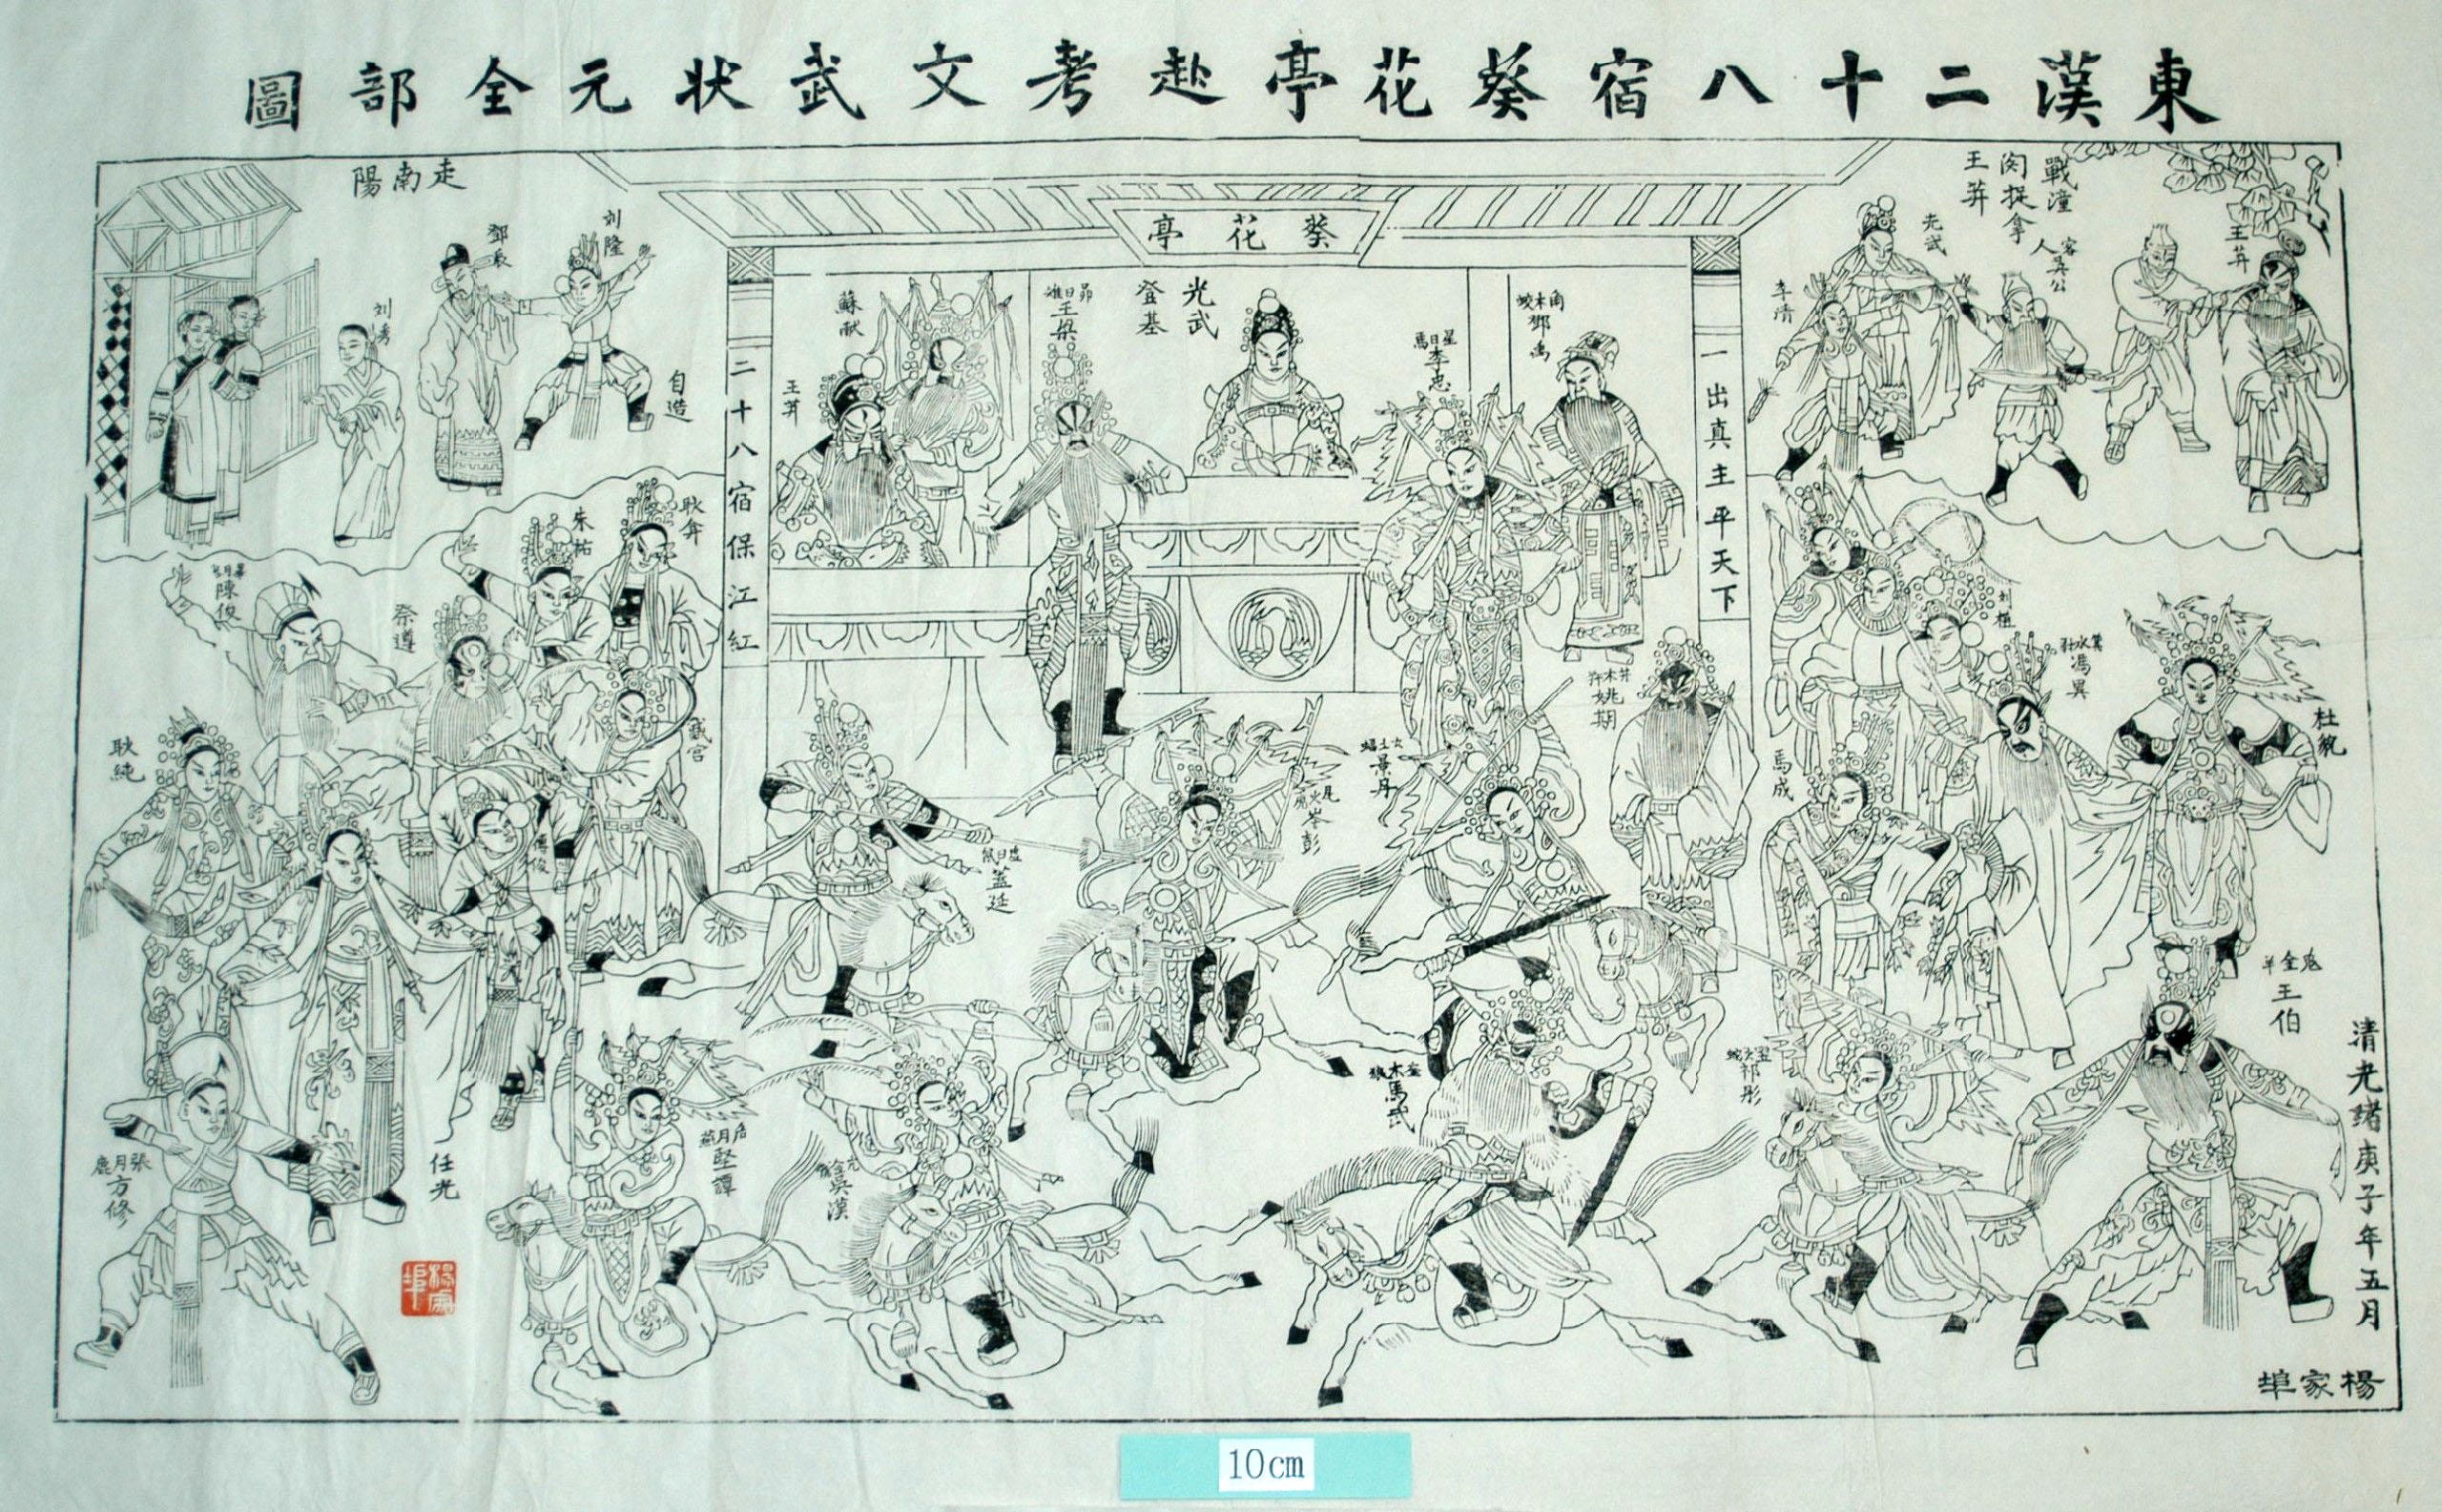 東漢二十八宿葵花亭赴考文武状元全部圖
葵花亭
一出真主平天下
二十八宿保江紅
戰潼
関捉拿
王莽
王莽
客
人
吳公
光武
李清
光武
登基
角木蛟
鄧禹
星日馬
李忠
昴日雞
王梁
蘇献
王莽
走南陽
刘隆
自造
鄧辰
刘秀
刘植
箕水豹
馮異
杜貌
馬成
井木犴
姚期
女土蝠
景丹
尾火虎
岑彭
虛日鼠
盖延
耿弇
朱祐
祭遵
畢月烏
陳俊
耿純
臧宮
傅俊
任光
張月鹿
方修
危月燕
堅譚
吳漢
奎木狼
馬武
祁彤
鬼金羊
王伯
清光緒庚子年五月
楊家埠
楊家埠
10cm